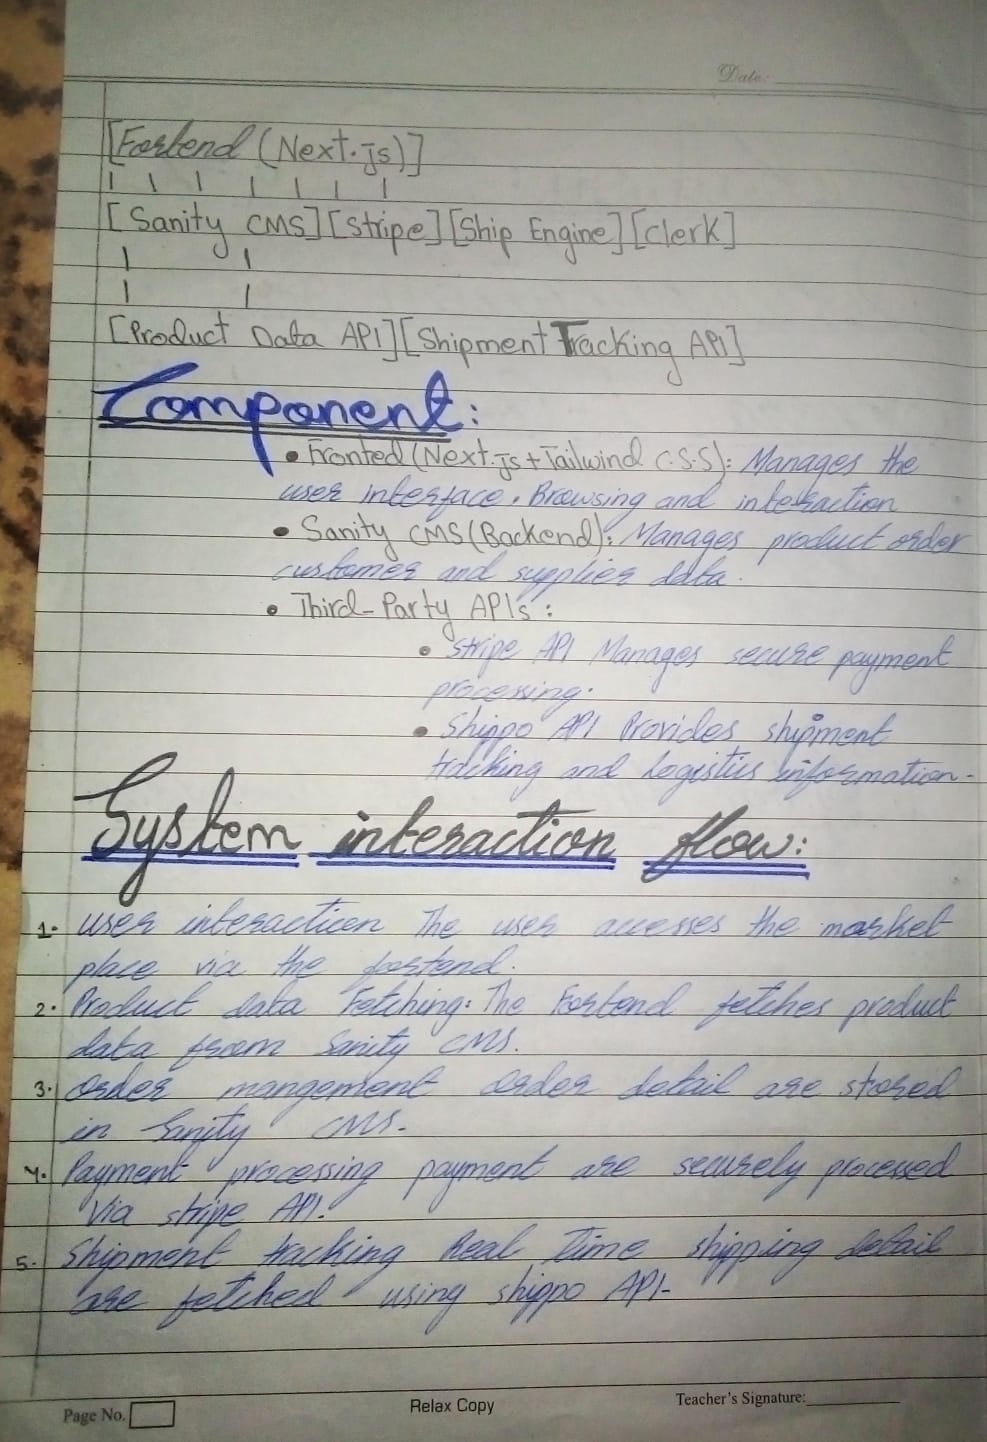 Date:
[Fortend (Next.js)]
[Sanity CMS][Stripe][Ship Engine][Clerk]
[Product Data API][Shipment Tracking API]
Component:
• Fronted (Next.js + Tailwind C.S.S): Manages the
user interface. Browsing and interaction
• Sanity CMS (Backend): Manages product order
customer and supplier data.
• Third-Party APIs:
• Stripe API Manages secure payment
processing.
• Shippo API Provides shipment
tracking and Logistics information.
System interaction flow:
1. user interaction The user accesses the market
place via the fortend.
2. Product data Fetching: The Fortend fetches product
data from Sanity CMS.
3. order mangement order detail are stored
in Sanity CMS.
4. Payment processing payment are securely processed
via stripe API.
5. Shipment tracking Real Time shipping detail
are fetched using shippo API.
Page No. Relax Copy Teacher's Signature: